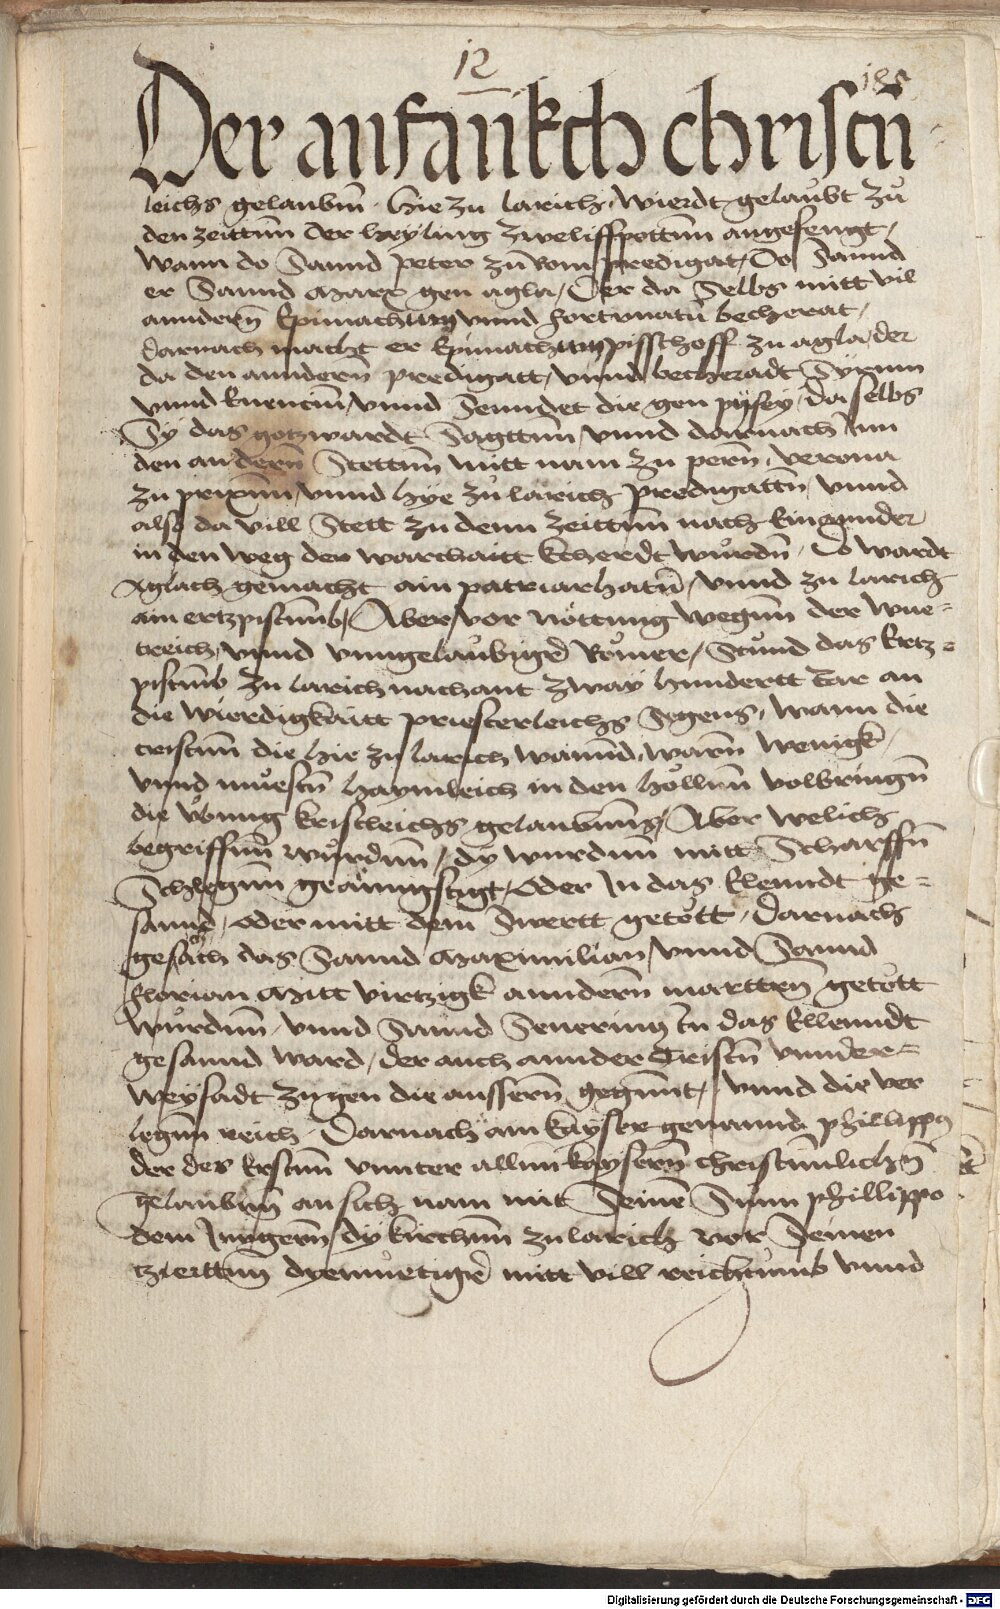 12
Der anfannkch christn
leichs gelaubm̄ · hie zu larich, wierdt gelaubt zů
den zeittūn der heyling zwelifpottūn angefengt,
Wann do Sannd Peter zu Rom predigat, Do Sannd
er Sannd Marx gen agla, Der da Selbs mitt vil
anndern̄ Epimachum vnnd fortunatū becherat,
darnach macht er Epimachum pisschoff zu agla, der
da den anndern̄ predigatt, vnnd becheradt Syrum
vnnd kuencin̄, vnnd Senndet die gen pysey, da selbs
Sy das gotzwardt Sagttūn, vnnd darnach inn
den andern̄ Stettūn mitt nam zu pern̄, verona
zu prixūn, vnnd hye zu larich predigattn̄, vnnd
also da vill Stett zu denn zeittūn nach einannder
in den weg der warchaitt kcherdt wůrdn̄, Do wardt
Aglach gemacht ain patriarhatū, vnnd zu larich
ain ertzpistūmb, Aber vor nöttung wegūn der wue-
treich, vnnd vnngelaubigē Römer, Stůnd das Ertz-
pistūmb zu larich nachant zway hundertt Iar an
die wierdigkaitt priesterleichs Segens, wann die
cristūn die hie zu larich wannd, warn̄ wenigk,
vnnd můestn̄ haymleich in den hölln̄ volbringn̄
die übung kristleichs gelaubūns, Aber welich
begriffūn wůrdūn, dy wurdūn mitt Scharffn̄
Schlegūn geänngstigt, oder in das Elenndt ge-
sannd, oder mitt dem Swertt getött, Darnach
geschach das Sannd Maximilian, vnnd Sannd
Florian Mitt virtzigk anndern̄ marttrn̄ getött
wůrdūn, vnnd Sannd Seuering In das Ellenndt
gesannd ward, der auch annder Cristn̄ vnnder-
weysadt zu gen die aussern̄ gegūnt, vnnd die ver
legūn reich, Darnach ain kayser genannd phillippus
der des Erstūn vnnter allūn kaysern̄ christūnlichn̄
gelaubm̄ an sich nam mit Seinē Sūnn phillippo
dem Jungern̄, dy kirchūn zu larich vor Seinen
tzeittūn dyemuetigē mitt vill reichtumb vnnd
Digitalisierung gefördert durch die Deutsche Forschungsgemeinschaft - DFG